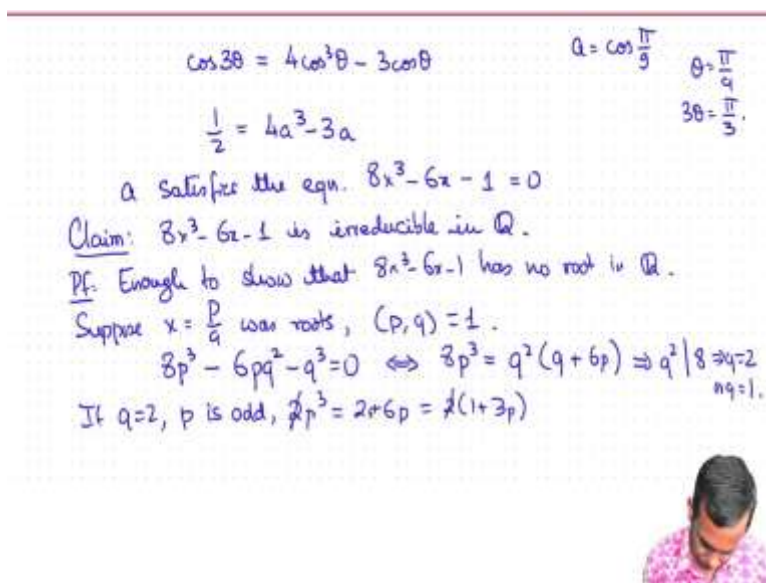 cos3θ = 4cos³θ - 3cosθ
a = cos π/9
θ = π/9
3θ = π/3.
1/2 = 4a³ - 3a
a satisfies the eqn. 8x³ - 6x - 1 = 0
Claim: 8x³ - 6x - 1 is irreducible in ℚ.
Pf: Enough to show that 8x³ - 6x - 1 has no root in ℚ.
Suppose x = p/q was roots, (p,q) = 1.
8p³ - 6pq² - q³ = 0 ⇔ 8p³ = q²(q + 6p) ⇒ q² | 8 ⇒ q=2
or q=1.
If q=2, p is odd, 2p³ = 2+6p = 2(1+3p)